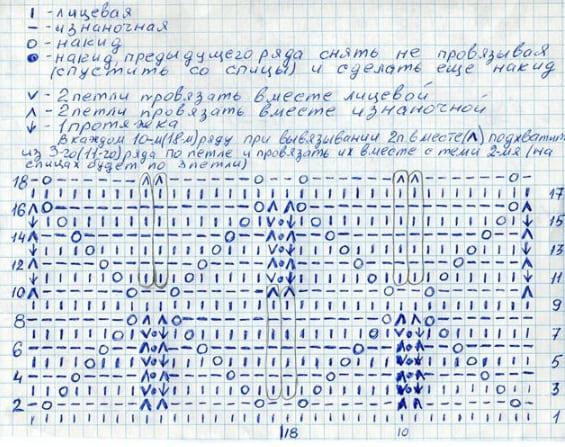 ı - лицевая
– - изнаночная
о - накид
● - накид предыдущего ряда снять не провязывая
(спустить со спицы) и сделать еще накид
v - 2 петли провязать вместе лицевой
ʌ - 2 петли провязать вместе изнаночной
↓ - 1 протяжка
В каждом 10-м (18м) ряду при вывязывании 2п вместе (ʌ) подхватит
из 3-го (11-го) ряда по петле и провязать их вместе с теми 2-мя (на
спицах будет по 3 петли)
18
17
16
15
14
13
12
11
10
9
8
7
6
5
4
3
2
1
18
10